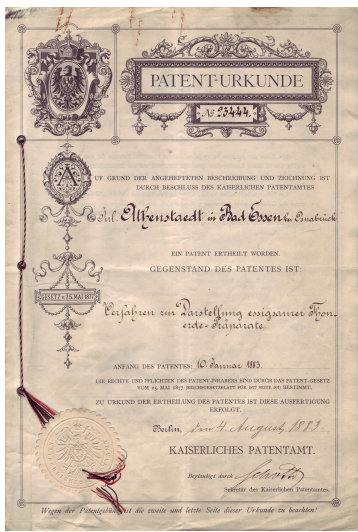 PATENT-URKUNDE
№ 23444.
AUF GRUND DER ANGEHEFTETEN BESCHREIBUNG UND ZEICHNUNG IST
DURCH BESCHLUSS DES KAISERLICHEN PATENTAMTES
Jul. Athenstaedt in Bad Essen bei Osnabrück
EIN PATENT ERTHEILT WORDEN.
GEGENSTAND DES PATENTES IST:
GESETZ v. 25. MAI 1877
Verfahren zur Darstellung essigsaurer Thon-
erde-Präparate.
ANFANG DES PATENTES: 10. Januar 1883.
DIE RECHTE UND PFLICHTEN DES PATENT-INHABERS SIND DURCH DAS PATENT-GESETZ
VOM 25. MAI 1877 (REICHSGESETZBLATT FÜR 1877 SEITE 501) BESTIMMT.
ZU URKUND DER ERTHEILUNG DES PATENTES IST DIESE AUSFERTIGUNG
ERFOLGT.
Berlin, den 4. August 1883
KAISERLICHES PATENTAMT.
Beglaubigt durch
Sekretär des Kaiserlichen Patentamtes.
Wegen der Patentgebühr ist die zweite und letzte Seite dieser Urkunde zu beachten!